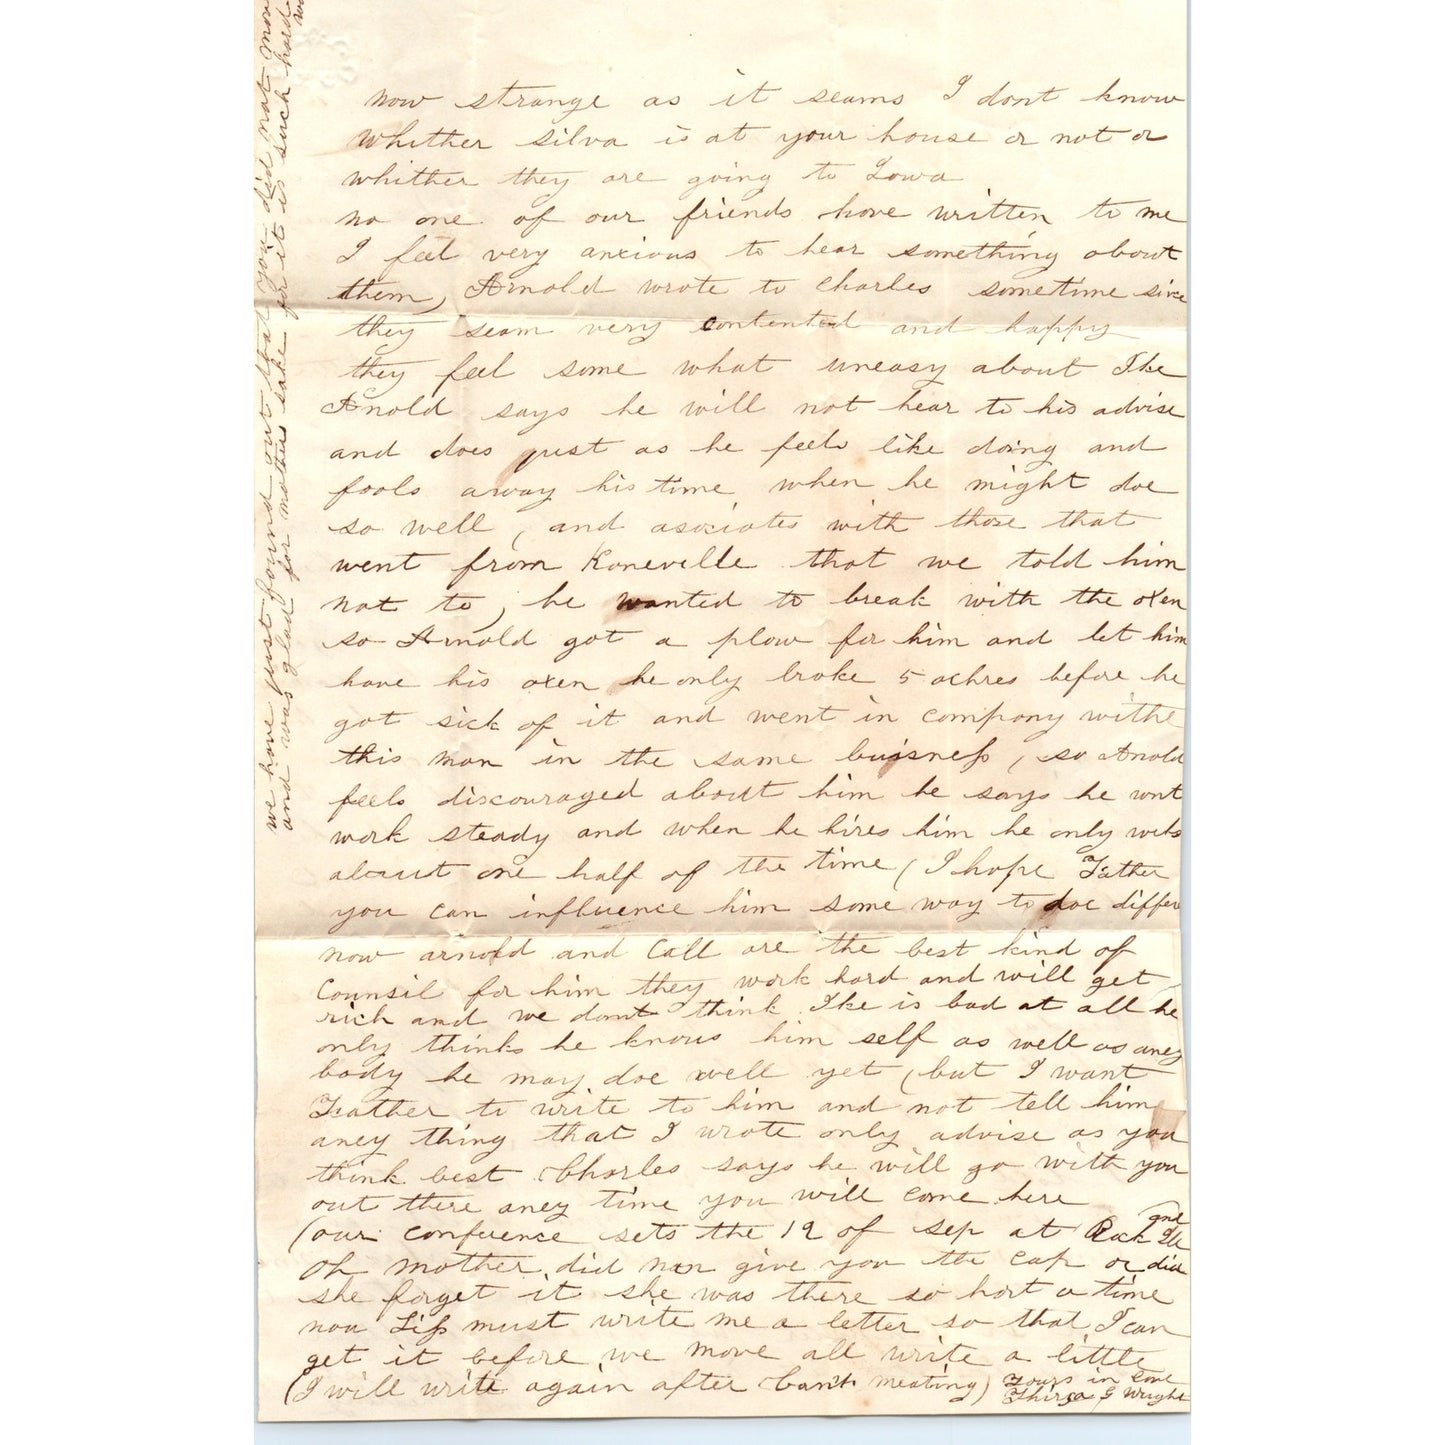 now strange as it seams I dont know
whither silva is at your house or not or
whither they are going to Iowa
no one of our friends have written to me
I feel very anxious to hear something about
them, Arnold wrote to Charles sometime since
they seam very contented and happy
they feel some what uneasy about Ike
Arnold says he will not hear to his advise
and does just as he feels like doing and
fools away his time when he might doe
so well, and asociates with those that
went from Kaneville that we told him
not to, he wanted to break with the oxen
so Arnold got a plow for him and let him
have his oxen he only broke 5 achres before he
got sick of it and went in company withe
this man in the same buisness, so Arnold
feels discouraged about him he says he wont
work steady and when he hires him he only
about one half of the time (I hope Father
you can influence him some way to doe differ
now arnold and Call are the best kind of
Counsil for him they work hard and will get
rich and we dont think Ike is bad at all he
only thinks he knows him self as well as aney
body he may doe well yet (but I want
Father to write to him and not tell him
aney thing that I wrote only advise as you
think best Charles says he will go with you
out there aney time you will come here
(our conference sets the 19 of sep at Rock Ill
Oh mother did nan give you the cap or did
she forget it she was there so hort a time
now Liss must write me a letter so that I can
get it before we move all write a little
(I will write again after Camt meating) Yours in love
Thirza G Wright
we have just found out that you did not
and was glad for mothers sake for it is such hard